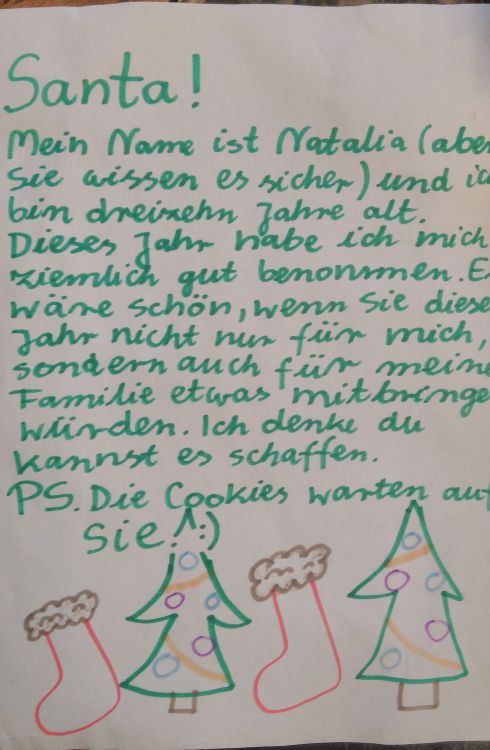 Santa!
Mein Name ist Natalia (aber
Sie wissen es sicher) und ic
bin dreizehn Jahre alt.
Dieses Jahr habe ich mich
ziemlich gut benommen. E
wäre schön, wenn Sie diese
Jahr nicht nur für mich,
sondern auch für meine
Familie etwas mitbringe
würden. Ich denke du
kannst es schaffen.
PS. Die Cookies warten auf
Sie! ^:)